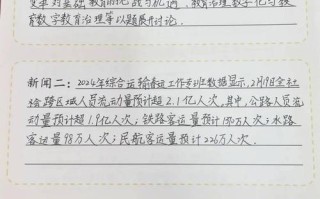 变革对基础教育的挑战与机遇、教育治理数字化与教
育数字教育治理等议题展开讨论.
新闻二：2024年综合运输春运工作专班数据显示,2月19日全社
会跨区域人员流动量预计超2.1亿人次,其中,公路人员流
动量预计超1.9亿人次;铁路客运量预计1510万人次;水路
客运量98万人次;民航客运量预计226万人次.